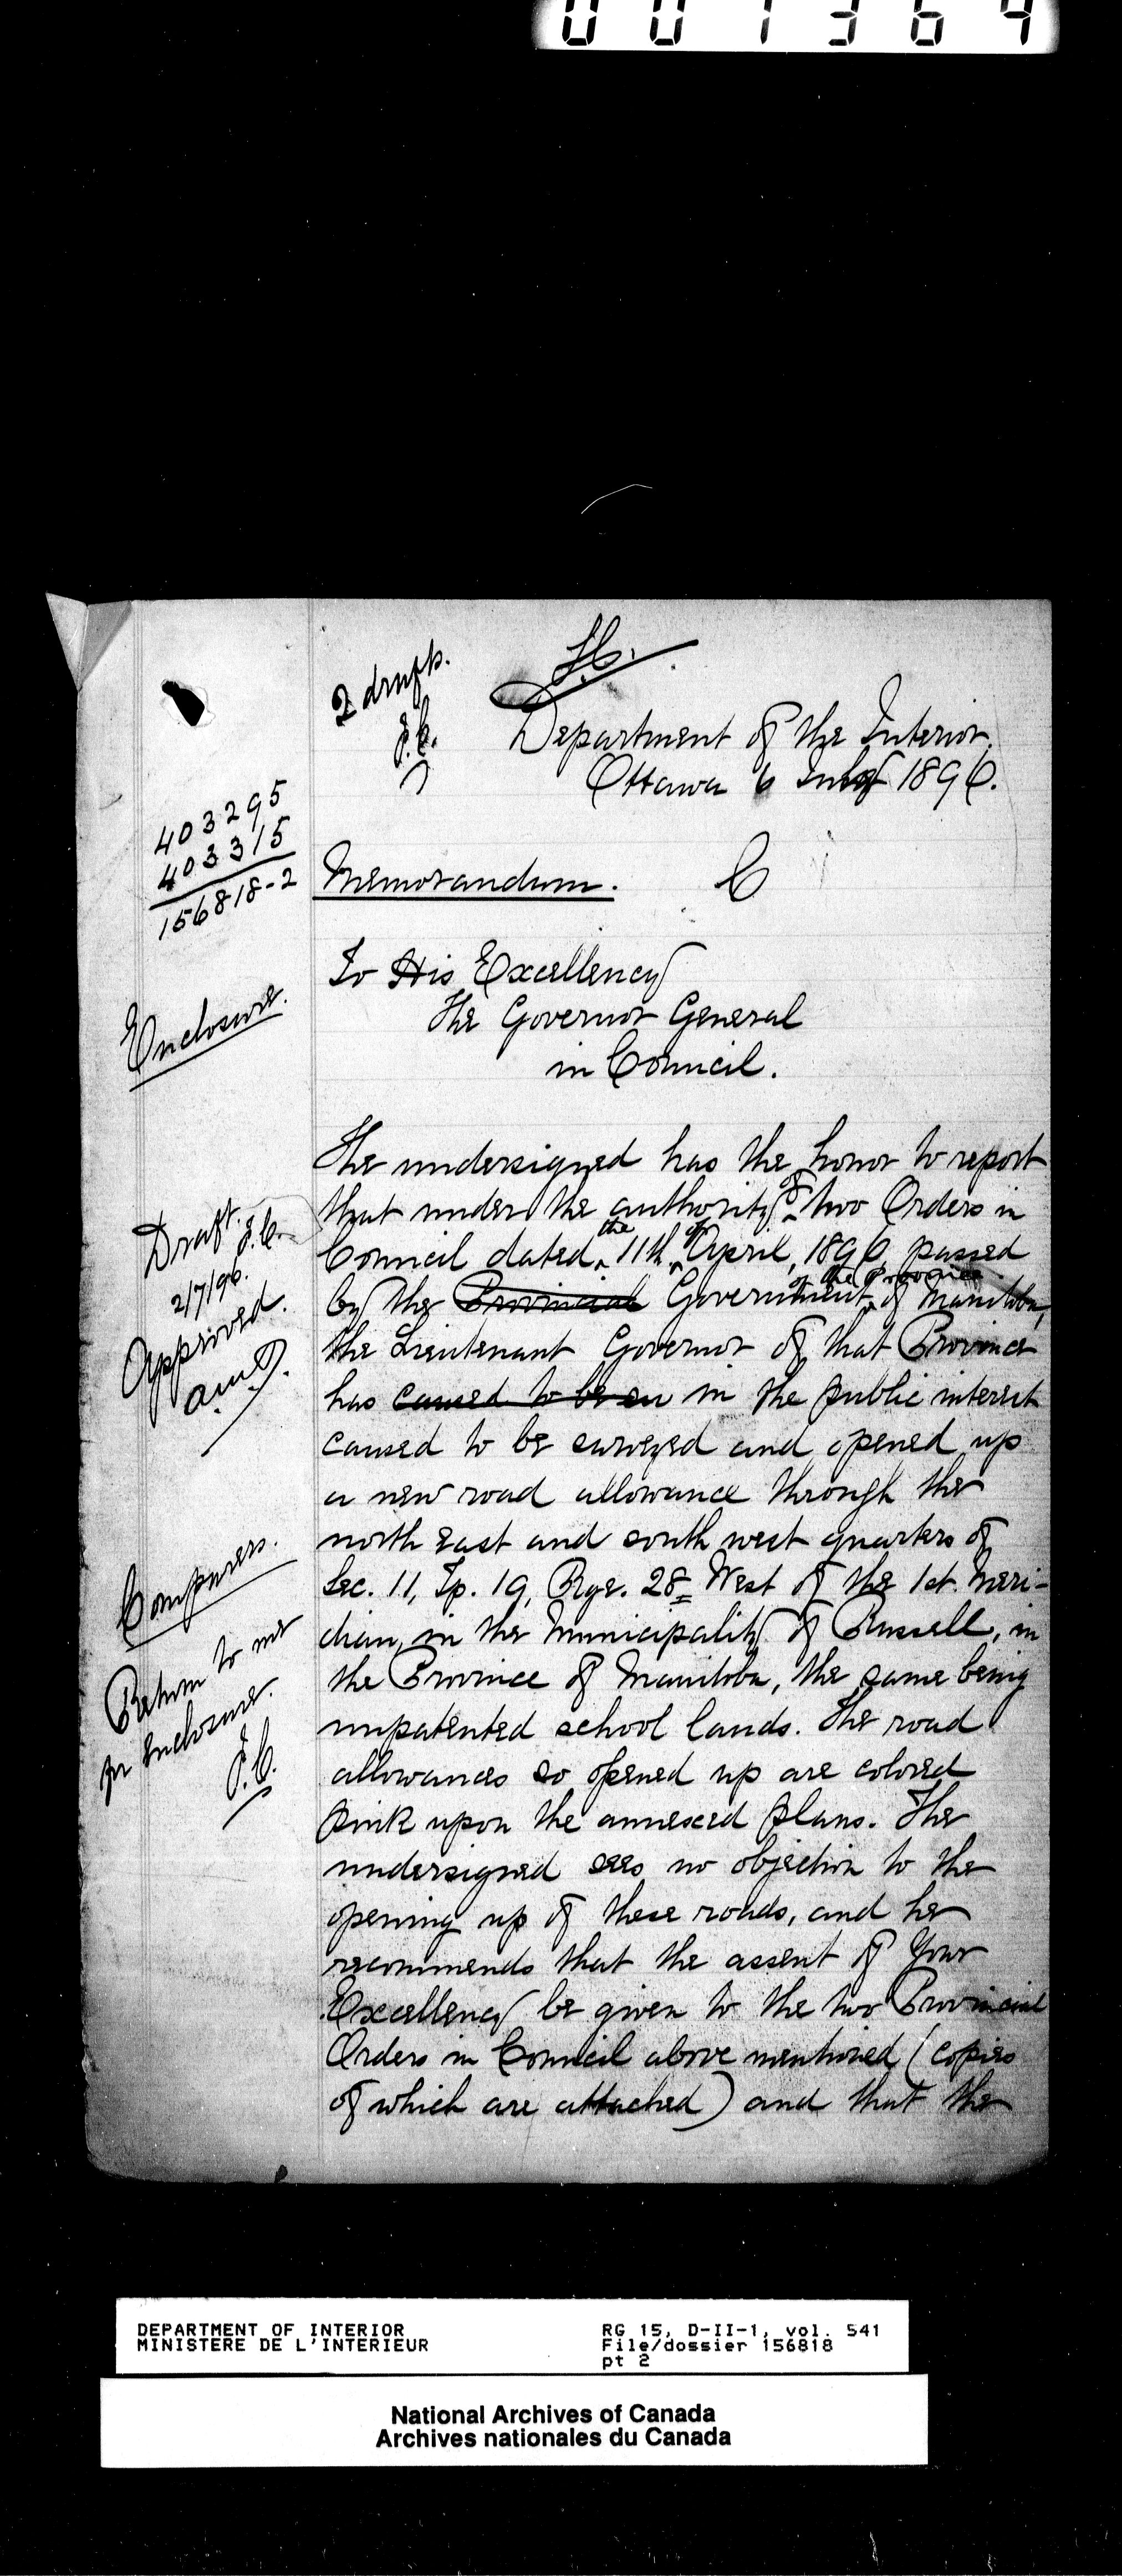 001364
2 drafts.
J.C.
Department of the Interior.
Ottawa 6 July 1896.
403295
403315
156818-2
Memorandum. C
To His Excellency
The Governor General
in Council.
Enclosure.
The undersigned has the honor to report
that under the authority of two Orders in
Council dated the 11th of April, 1896 passed
by the Provincial Government of the Province of Manitoba,
the Lieutenant Governor of that Province
has caused to be su in the public interest
caused to be surveyed and opened up
a new road allowance through the
north east and south west quarters of
Sec. 11, Tp. 19, Rge. 28 West of the 1st Meri-
dian, in the Municipality of Russell, in
the Province of Manitoba, the same being
unpatented school lands. The road
allowances so opened up are colored
pink upon the annexed plans. The
undersigned sees no objection to the
opening up of these roads, and he
recommends that the assent of Your
Excellency be given to the two Provincial
Orders in Council above mentioned (copies
of which are attached) and that the
Draft. J.C.
2/7/96.
Approved.
Comparers.
Return to me
for enclosure.
J.C.
DEPARTMENT OF INTERIOR
MINISTERE DE L'INTERIEUR
RG 15, D-II-1, vol. 541
File/dossier 156818
pt 2
National Archives of Canada
Archives nationales du Canada